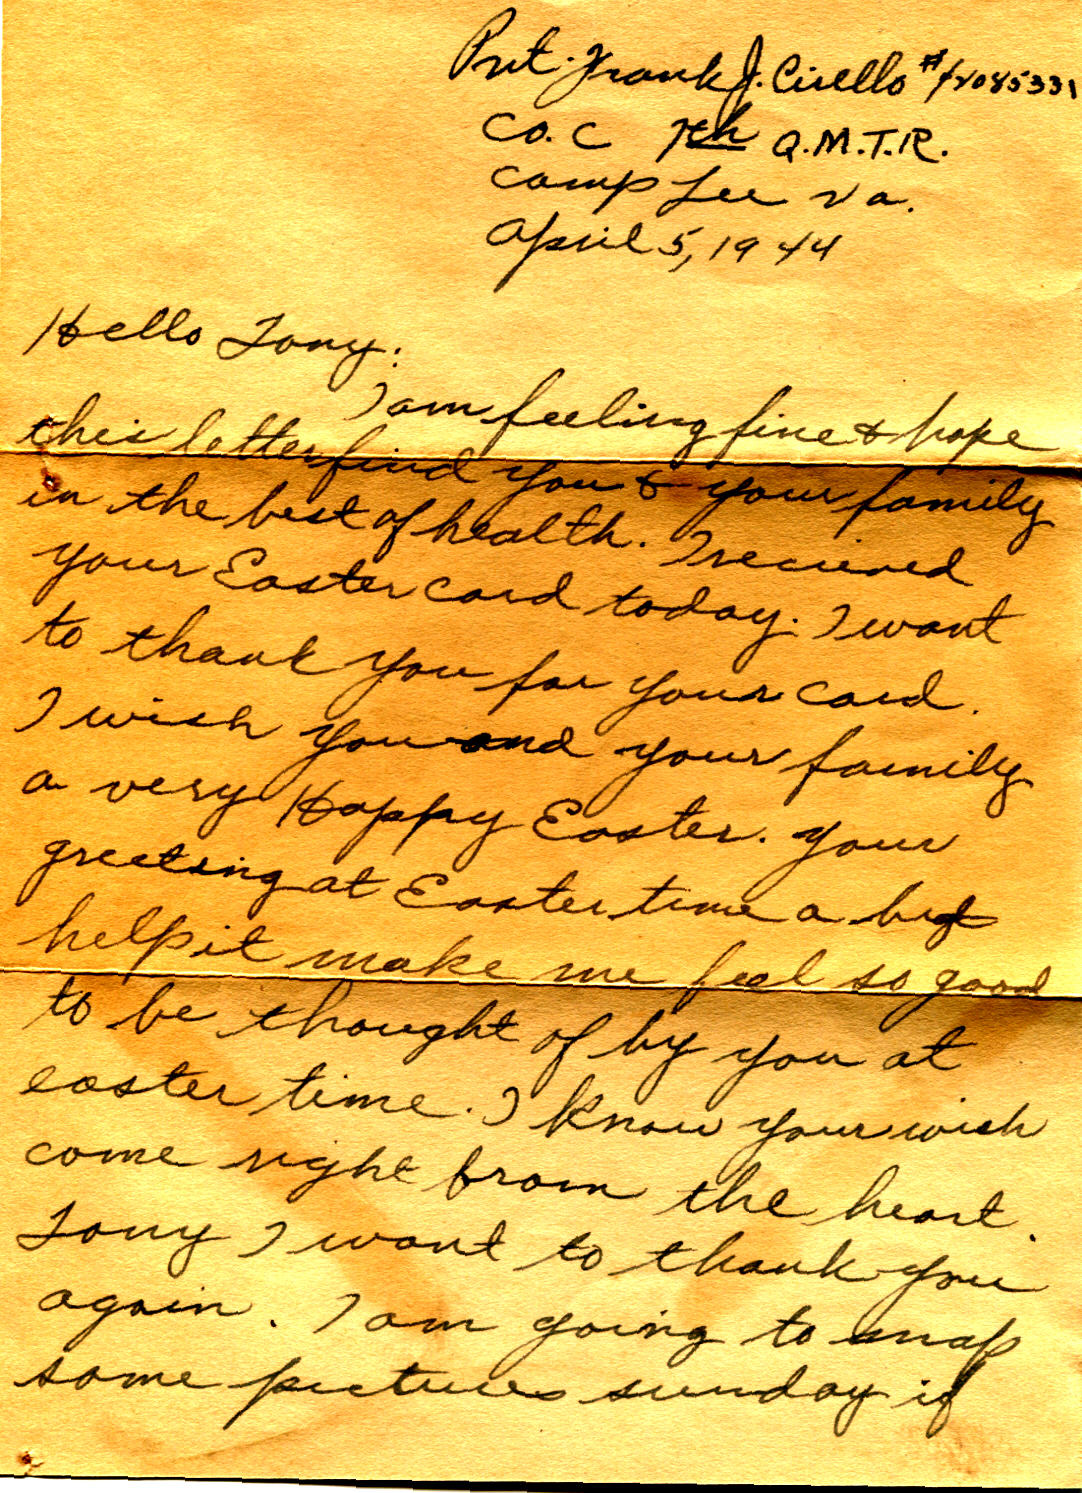 Pvt. Frank J. Cirello #42085331
Co. C 7th Q.M.T.R.
Camp Lee Va.
April 5, 1944
Hello Tony:
I am feeling fine & hope
this letter find you & your family
in the best of health. I recieved
your Easter card today. I want
to thank you for your card.
I wish you and your family
a very Happy Easter. Your
greeting at Easter time a big
help it make me feel so good
to be thought of by you at
easter time. I know your wish
come right from the heart.
Tony I want to thank you
again. I am going to snap
some pictures sunday if